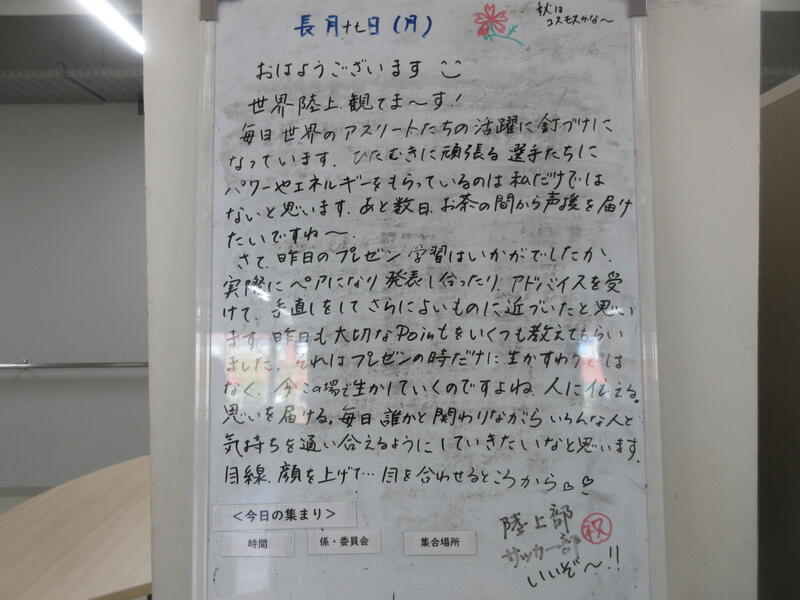 長月十七日(月)
秋は
コスモスかな〜
おはようございます
世界陸上、観てま〜す!
毎日世界のアスリートたちの活躍に釘づけに
なっています。ひたむきに頑張る選手たちに
パワーやエネルギーをもらっているのは私だけでは
ないと思います。あと数日、お茶の間から声援を届け
たいですね〜。
さて、昨日のプレゼン学習はいかがでしたか。
実際にペアになり発表し合ったり、アドバイスを受
けて、手直しをしてさらによいものに近づいたと思い
ます。昨日も大切なPointをいくつも教えてもらい
ました。それはプレゼンの時だけに生かすわけでは
なく、今この場で生かしていくのですよね。人に伝える。
思いを届ける。毎日誰かと関わりながらいろんな人と
気持ちを通い合えるようにしていきたいなと思います。
目線、顔を上げて…目を合わせるところから
<今日の集まり>
時間
係・委員会
集合場所
陸上部
サッカー部
祝
いいぞ〜!!